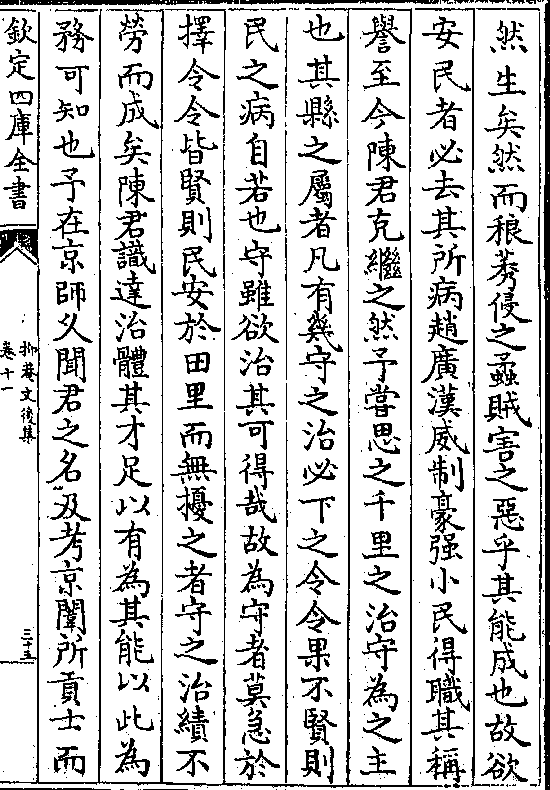 然生矣然而稂莠侵之蟊賊害之惡乎其能成也故欲
安民者必去其所病趙廣漢威制豪强小民得職其稱
譽至今陳君克繼之然予嘗思之千里之治守為之主
也其縣之屬者凡有幾守之治必下之令令果不賢則
民之病自若也守雖欲治其可得哉故為守者莫急於
擇令令皆賢則民安於田里而無擾之者守之治績不
勞而成矣陳君識達治體其才足以有為其能以此為
務可知也予在京師久聞君之名及考京闈所貢士而
欽定四庫全書
抑菴文後集
卷十一
三十五